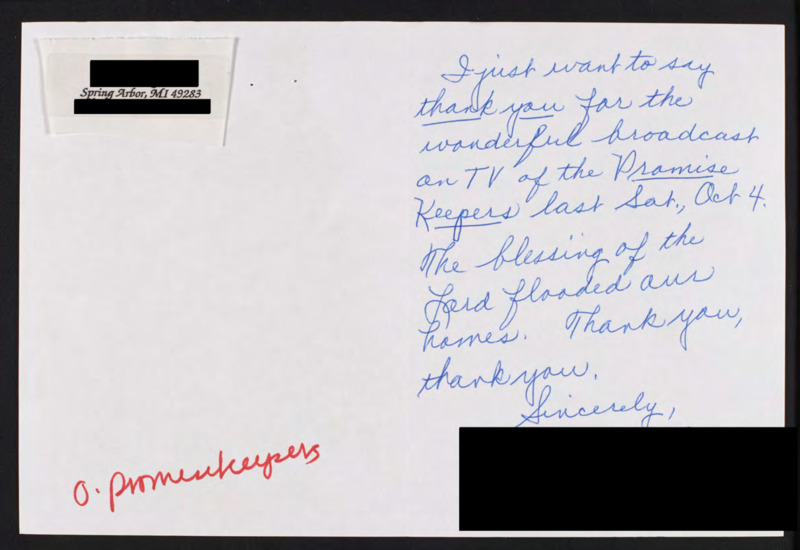 Spring Arbor, MI 49283
I just want to say
thank you for the
wonderful broadcast
on TV of the Promise
Keepers last Sat., Oct 4.
The blessing of the
Lord flooded our
homes. Thank you,
thank you.
Sincerely,
O. promisekeepers